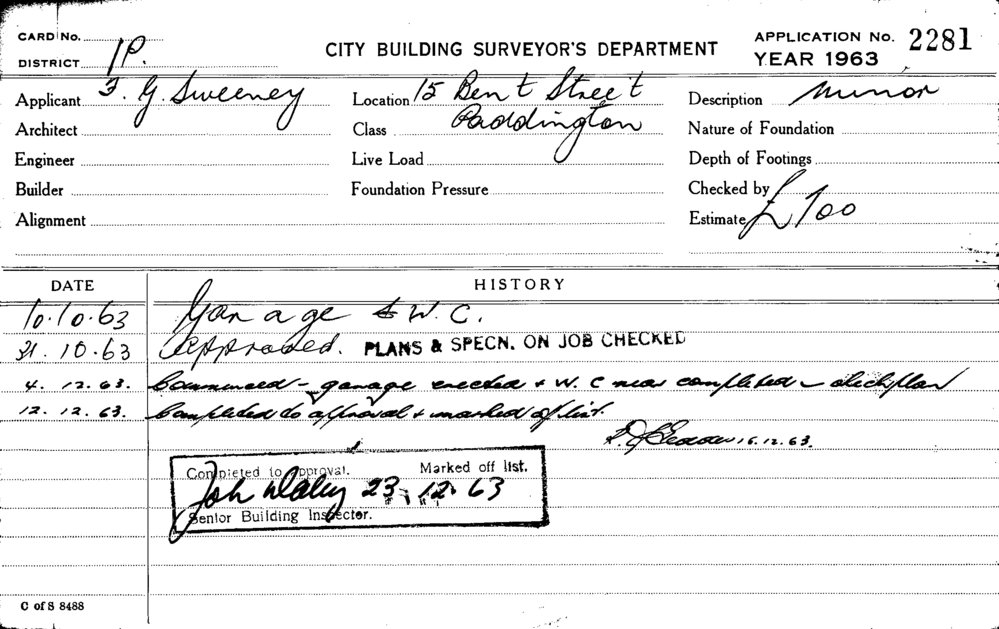 CARD No.
DISTRICT 1P.
CITY BUILDING SURVEYOR'S DEPARTMENT
APPLICATION No. 2281
YEAR 1963
Applicant F. G. Sweeney
Location 15 Bent Street
Description Minor
Architect
Class Paddington
Nature of Foundation
Engineer
Live Load
Depth of Footings
Builder
Foundation Pressure
Checked by
Alignment
Estimate £700
DATE
HISTORY
10.10.63 Garage & W.C.
31.10.63 Approved. PLANS & SPECN. ON JOB CHECKED
4.12.63. Commenced - garage erected & W.C near completed - check plan
12.12.63. Completed to approval & marked off list.
16.12.63.
Completed to approval. Marked off list.
John Daley 23.12.63
Senior Building Inspector.
C of S 8488